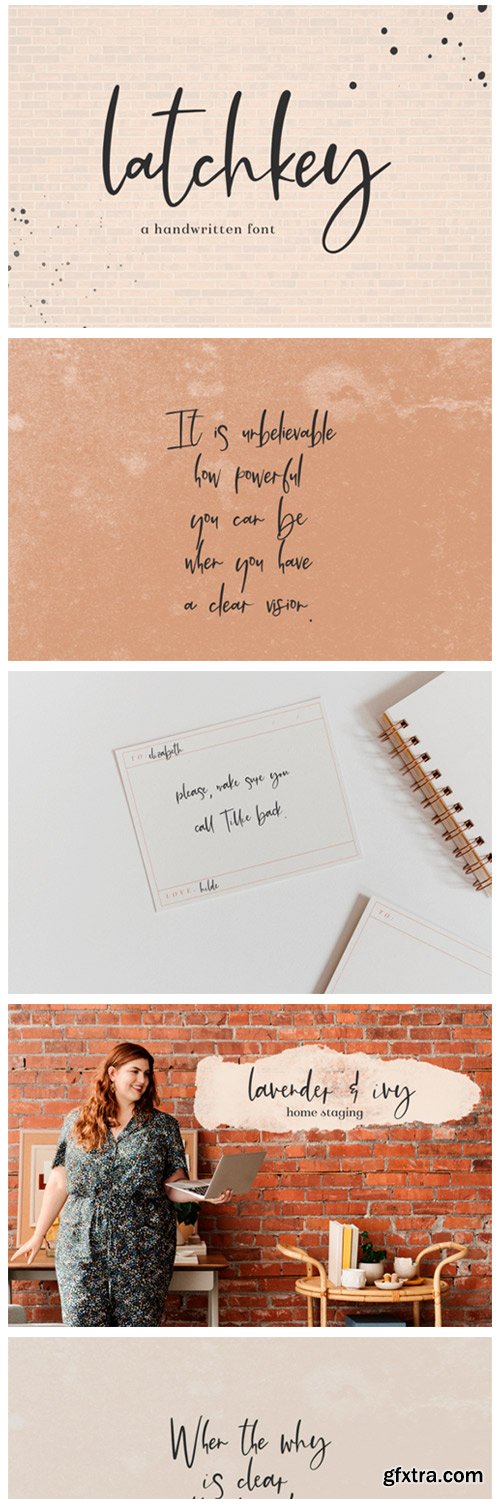 latchkey
a handwritten font
It is unbelievable
how powerful
you can be
when you have
a clear vision.
TO: elizabeth
please, make sure you
call Tillie back.
LOVE, hilde
TO:
lavender & ivy
home staging
When the why
is clear
gfxtra.com